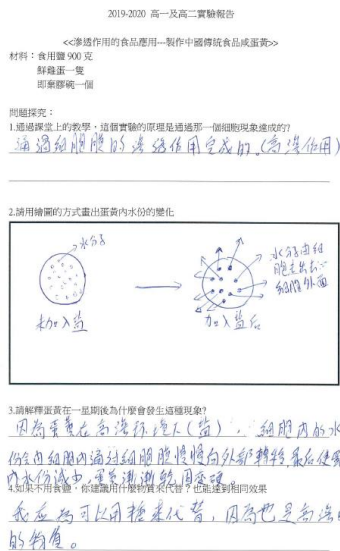 2019-2020 高一及高二實驗報告
<<滲透作用的食品應用---製作中國傳統食品咸蛋黃>>
材料：食用鹽 900 克
鮮雞蛋一隻
即棄膠碗一個
問題探究：
1.通過課堂上的教學，這個實驗的原理是通過那一個細胞現象達成的?
通過細胞膜的滲透作用完成的。(高滲作用)
2.請用繪圖的方式畫出蛋黃內水份的變化
水分子
未加入盐
加入盐后
水分子由細
胞走出去
細胞外面
3.請解釋蛋黃在一星期後為什麼會發生這種現象?
因為蛋黃在高滲环境下(盐)，細胞內的水
份会由細胞內通过細胞膜慢慢向外部轉移，最后使
內水份減少，蛋黃漸漸乾固
4.如果不用食鹽，你建議用什麼物質來代替？也能達到相同效果
我应為可以用糖來代替，因為也是高滲
的物質。